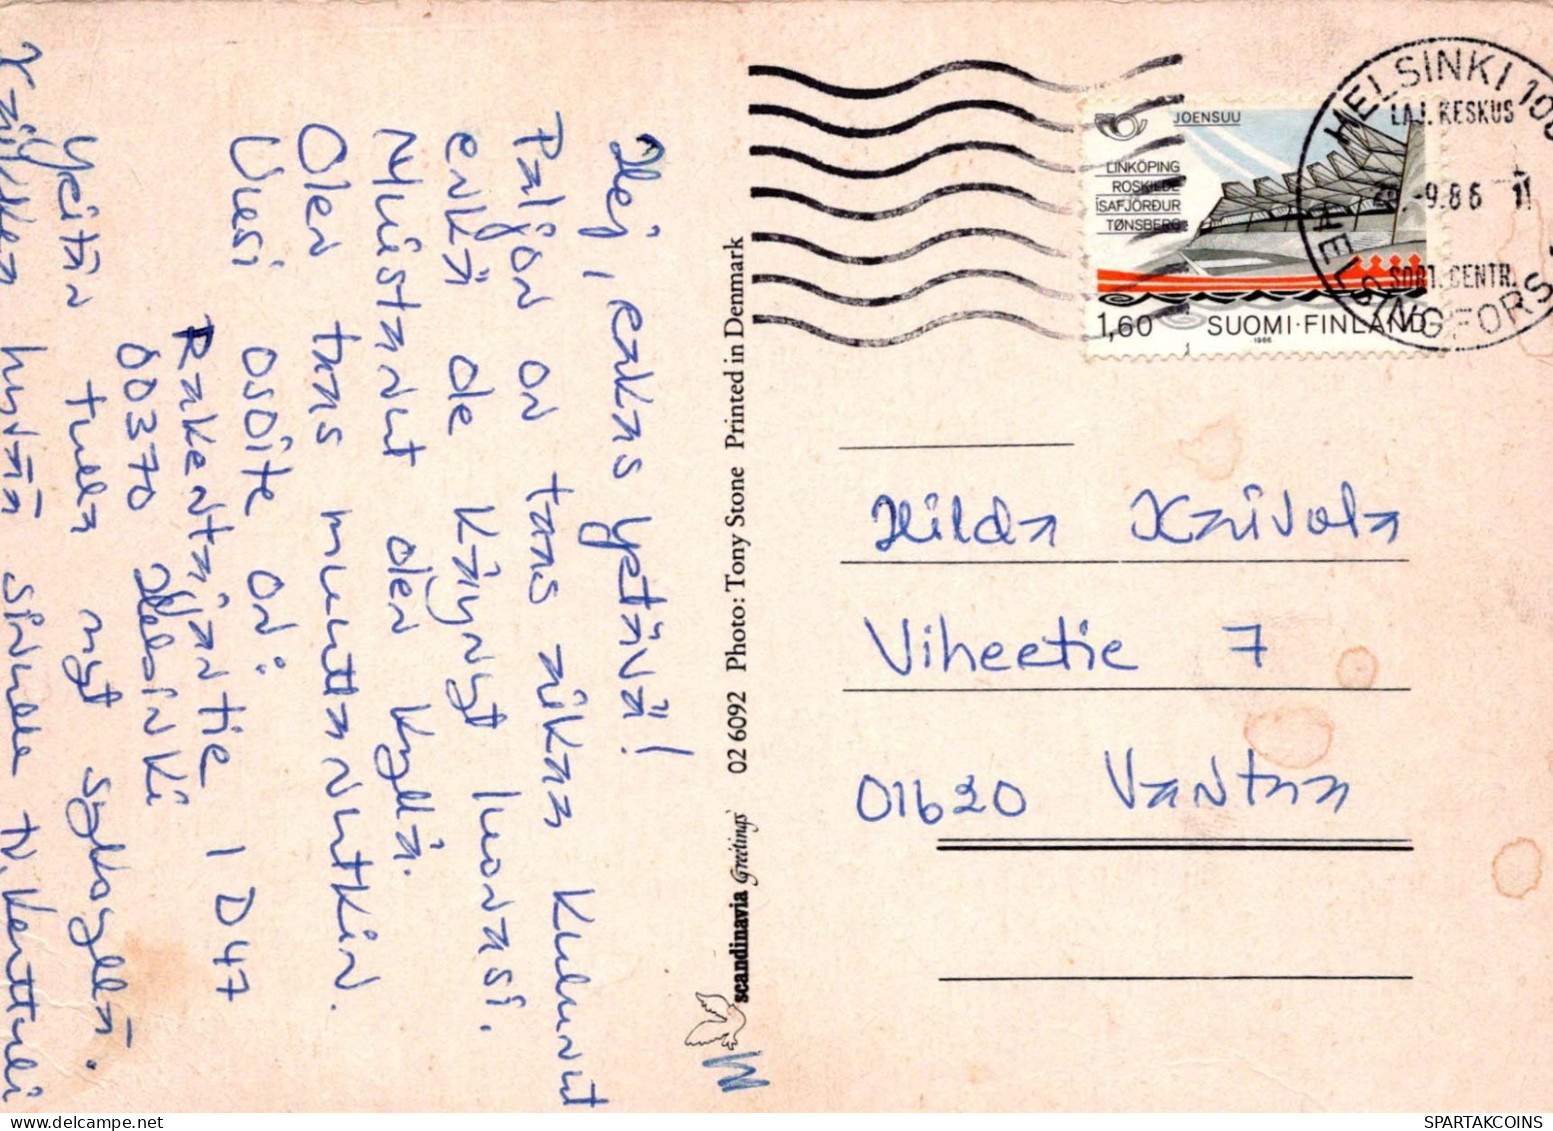 Hej, rakas ystävä!
Paljon on taas aikaa kulunut
enkä ole käynyt luonasi.
Muistanut olen kyllä.
Olen taas muuttanutkin.
Uusi osoite on:
Rakentajantie 1 D 47
00370 Helsinki
Yritän tulla nyt syksyllä.
Kaikkea hyvää sinulle t. Kerttuli
scandinavia Greetings 02 6092 Photo: Tony Stone Printed in Denmark
JOENSUU
LINKÖPING
ROSKILDE
ÍSAFJÖRÐUR
TØNSBERG
1,60 SUOMI·FINLAND
1986
HELSINKI 100
LAJ. KESKUS
-9.86 11
SORT. CENTR.
HELSINGFORS
Hilda Kaivola
Viheetie 7
01620 Vantaa
SPARTAKCOINS